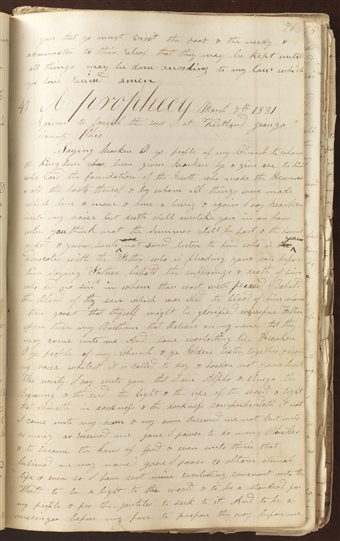 you that ye must visit the poor & the needy &
administer to their relief that they may be kept until
all things may be done according to my law which
ye have amen
A prophecy March 7th 1831
given to Joseph the seer at Kirtland Geauga
County Ohio
Saying Hearken O ye people of my Church to whom
the Kingdom has been given hearken ye & give ear to him
who laid the foundation of the Earth who made the Heavens
& all the hosts thereof & by whom all things were made
which live & move & have a being & again I say hearken
unto my voice lest death shall overtake you in an hour
when you think not the summer shall be past & the harvest
ended & your souls not saved listen to him who is
advocate with the Father who is pleading your cause before
him saying Father behold the sufferings & death of him
who did no sin in whom thou wast well pleased Behold
the blood of thy son which was shed the blood of him whom
thou gavest that thyself might be glorified wherefore Father
spare these my Brethren that believe on my name that they
may come unto me And have everlasting life Hearken
O ye people of my Church & ye Elders listen together & hear
my voice whilest it is called to day & harden not your hearts
For verily I say unto you that I am Alpha & Omega the
begining & the end the light & the life of the world a light
that shineth in darkness & the darkness comprehendeth it not
I came unto my own & my own received me not but unto
as many as received me gave I power to do many Miracles
& to become the Sons of God & even unto them that
believed on my name gave I power to obtain eternal
life & even so I have sent mine everlasting covenant into the
World to be a light to the world & to be a standard for
my people & for the gentiles to seek to it And to be a
messenger before my face to prepare the way before me